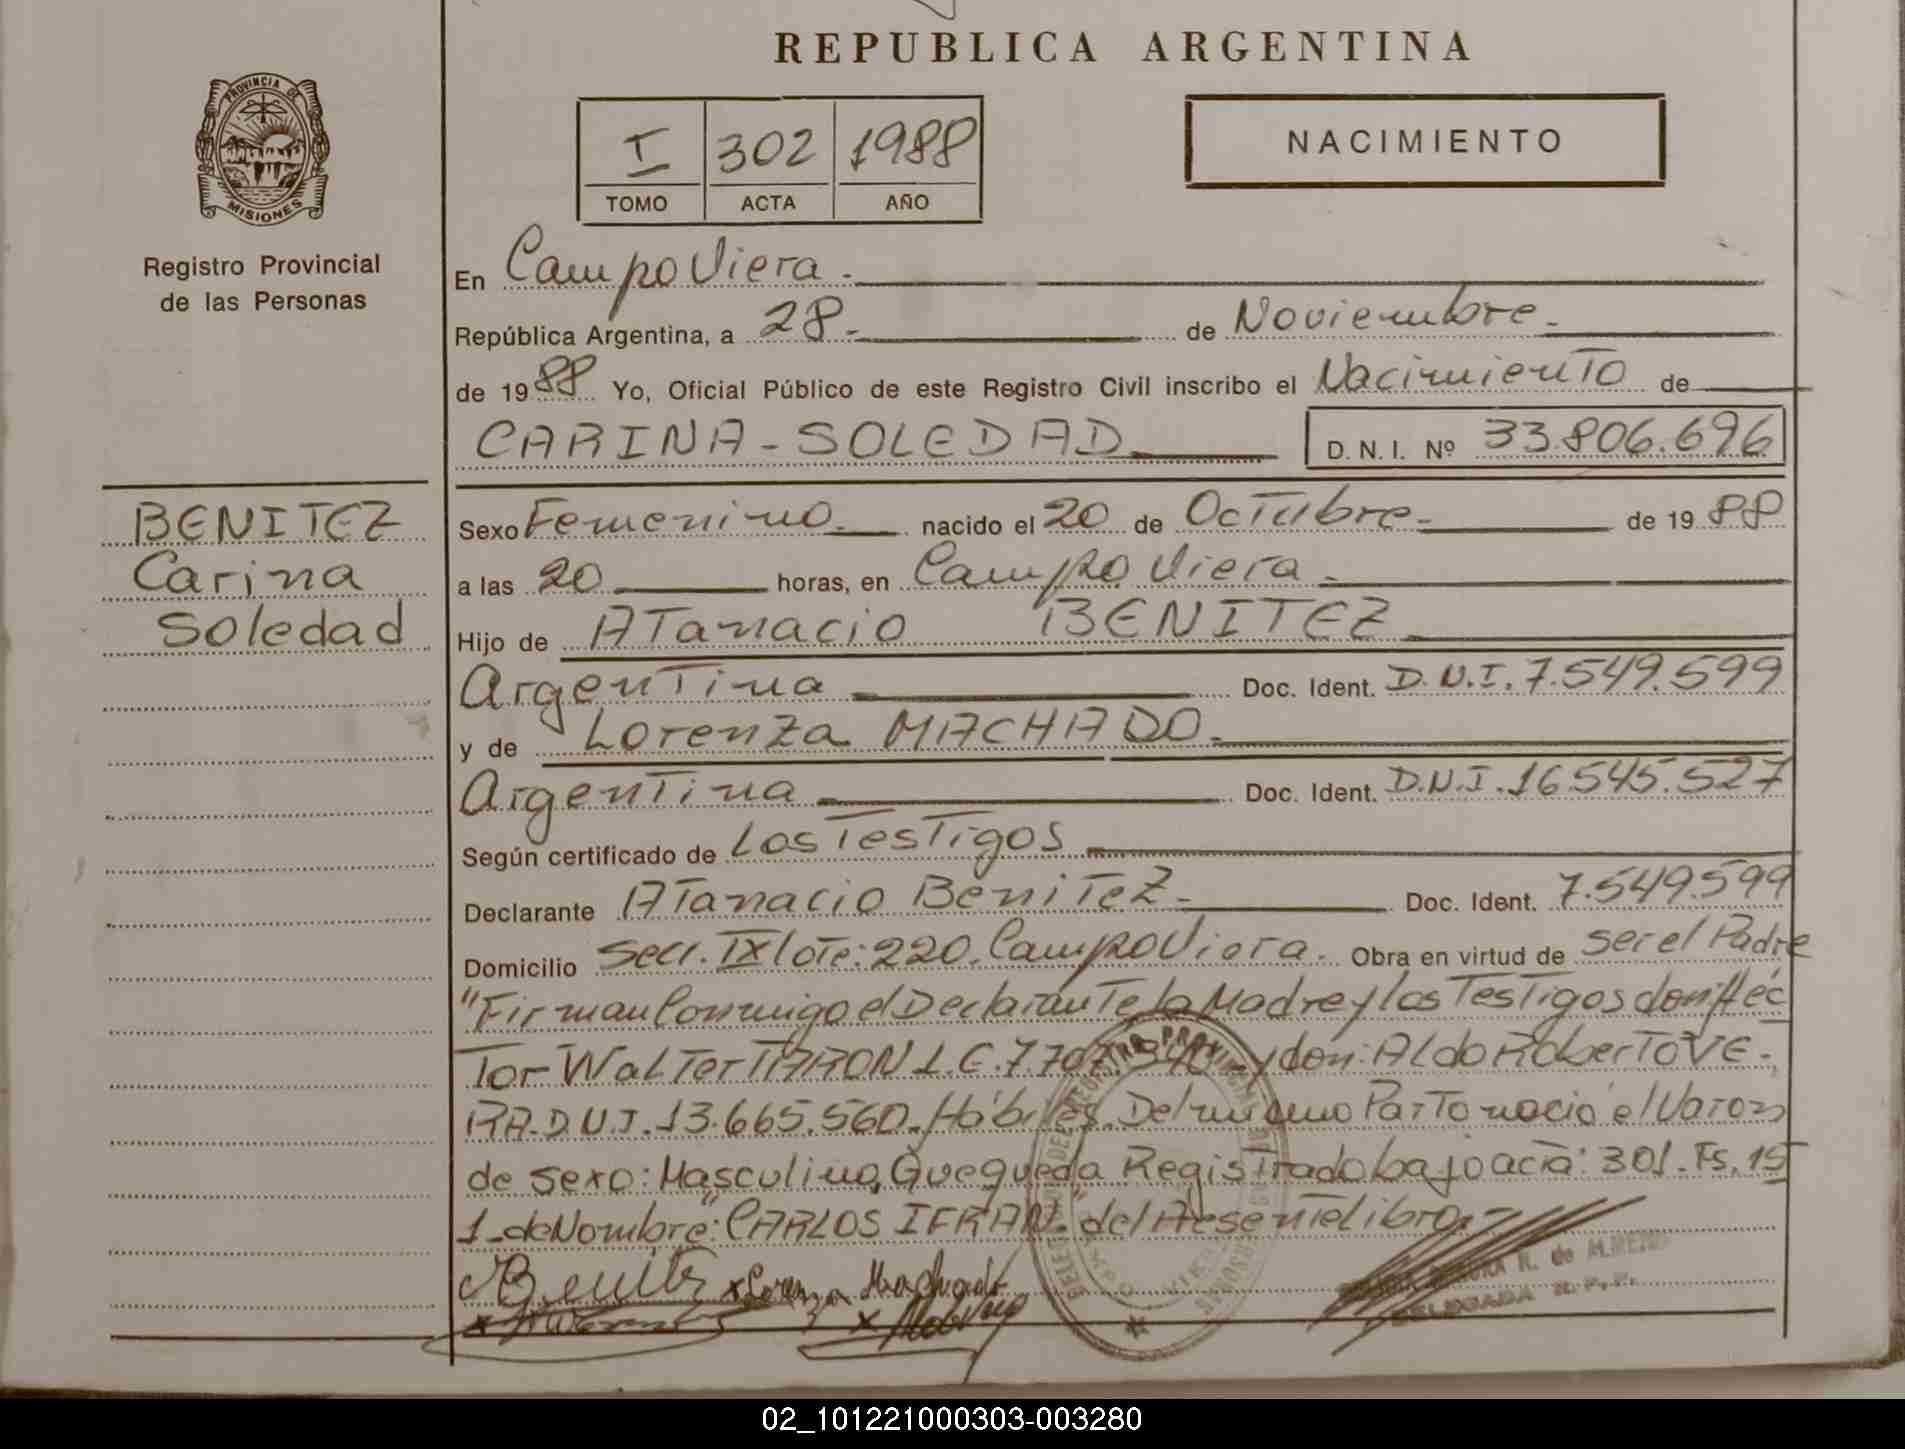 REPUBLICA ARGENTINA
PROVINCIA DE
MISIONES
Registro Provincial
de las Personas
I 302 1988
TOMO ACTA AÑO
NACIMIENTO
En Campo Viera.
República Argentina, a 28.- de Noviembre.-
de 1988 Yo, Oficial Público de este Registro Civil inscribo el Nacimiento de
CARINA-SOLEDAD D. N. I. Nº 33.806.696
BENITEZ
Carina
Soledad
Sexo Femenino.- nacido el 20 de Octubre.- de 1988
a las 20 horas, en Campo Viera.-
Hijo de Atanacio BENITEZ
Argentina Doc. Ident. D.N.I. 7.549.599
y de Lorenza MACHADO.-
Argentina Doc. Ident. D.N.I. 16.545.527
Según certificado de Los Testigos
Declarante Atanacio Benitez.- Doc. Ident. 7.549.599
Domicilio Secc. IX lote: 220. Campo Viera. Obra en virtud de ser el Padre
"Firman Conmigo el Declarante, la Madre y los Testigos don: Héc
Tor Walter TARON L.E. 7.707.340 y don: Aldo Roberto VE-
RA. D.N.I. 13.665.560. Hábiles. Del mismo Parto nació el Varon
de sexo: Masculino, Que queda Registrado bajo acta: 301. Fs. 15
1 de Nombre: "CARLOS IFRAN" del Presente libro.-
Benitez x Lorenza Machado
DELEGADA R.P.P.
02_101221000303-003280